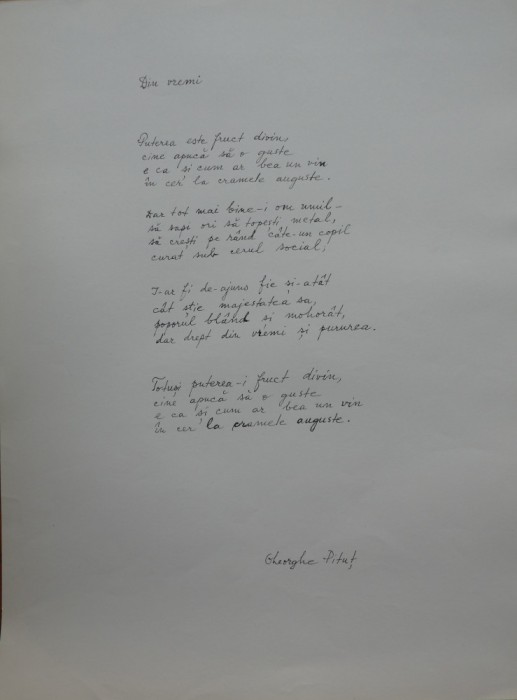 Din vremi
Puterea este fruct divin,
cine apucă să o guste
e ca și cum ar bea un vin
în cer la cramele auguste.
Dar tot mai bine-i om umil -
să sapi ori să topești metal,
să crești pe rând câte-un copil
curat sub cerul social,
I-ar fi de-ajuns fie și-atât
cât știe majestatea sa,
poporul blând și mohorât,
dar drept din vremi și pururea.
Totuși puterea-i fruct divin,
cine apucă să o guste
e ca și cum ar bea un vin
în cer la cramele auguste.
Gheorghe Pituț